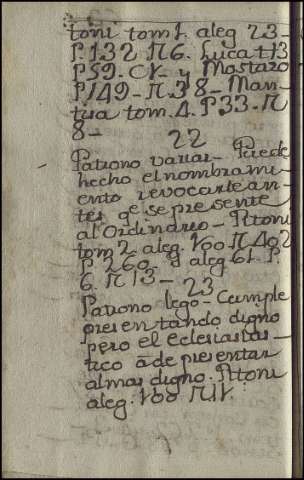 toni tom 1. aleg 23-
P. 132 N6. Luca t 13
P 59. Cr. y Mostazo
P 149- N.38- Man-
tica tom. 4. P 33. N
8-
22
Patrono variar- Puede
hecho el nombrami
ento revocarle an-
tes qe se presente
al Ordinario- Pitoni
tom 2. aleg. 100 N 402
P. 260. y aleg 61. P.
6. N 13-
23
Patrono lego- Cumple
presentando digno
pero el eclesiás-
tico ā de presentar
al mas digno. Pitoni
aleg. 100 N 11.